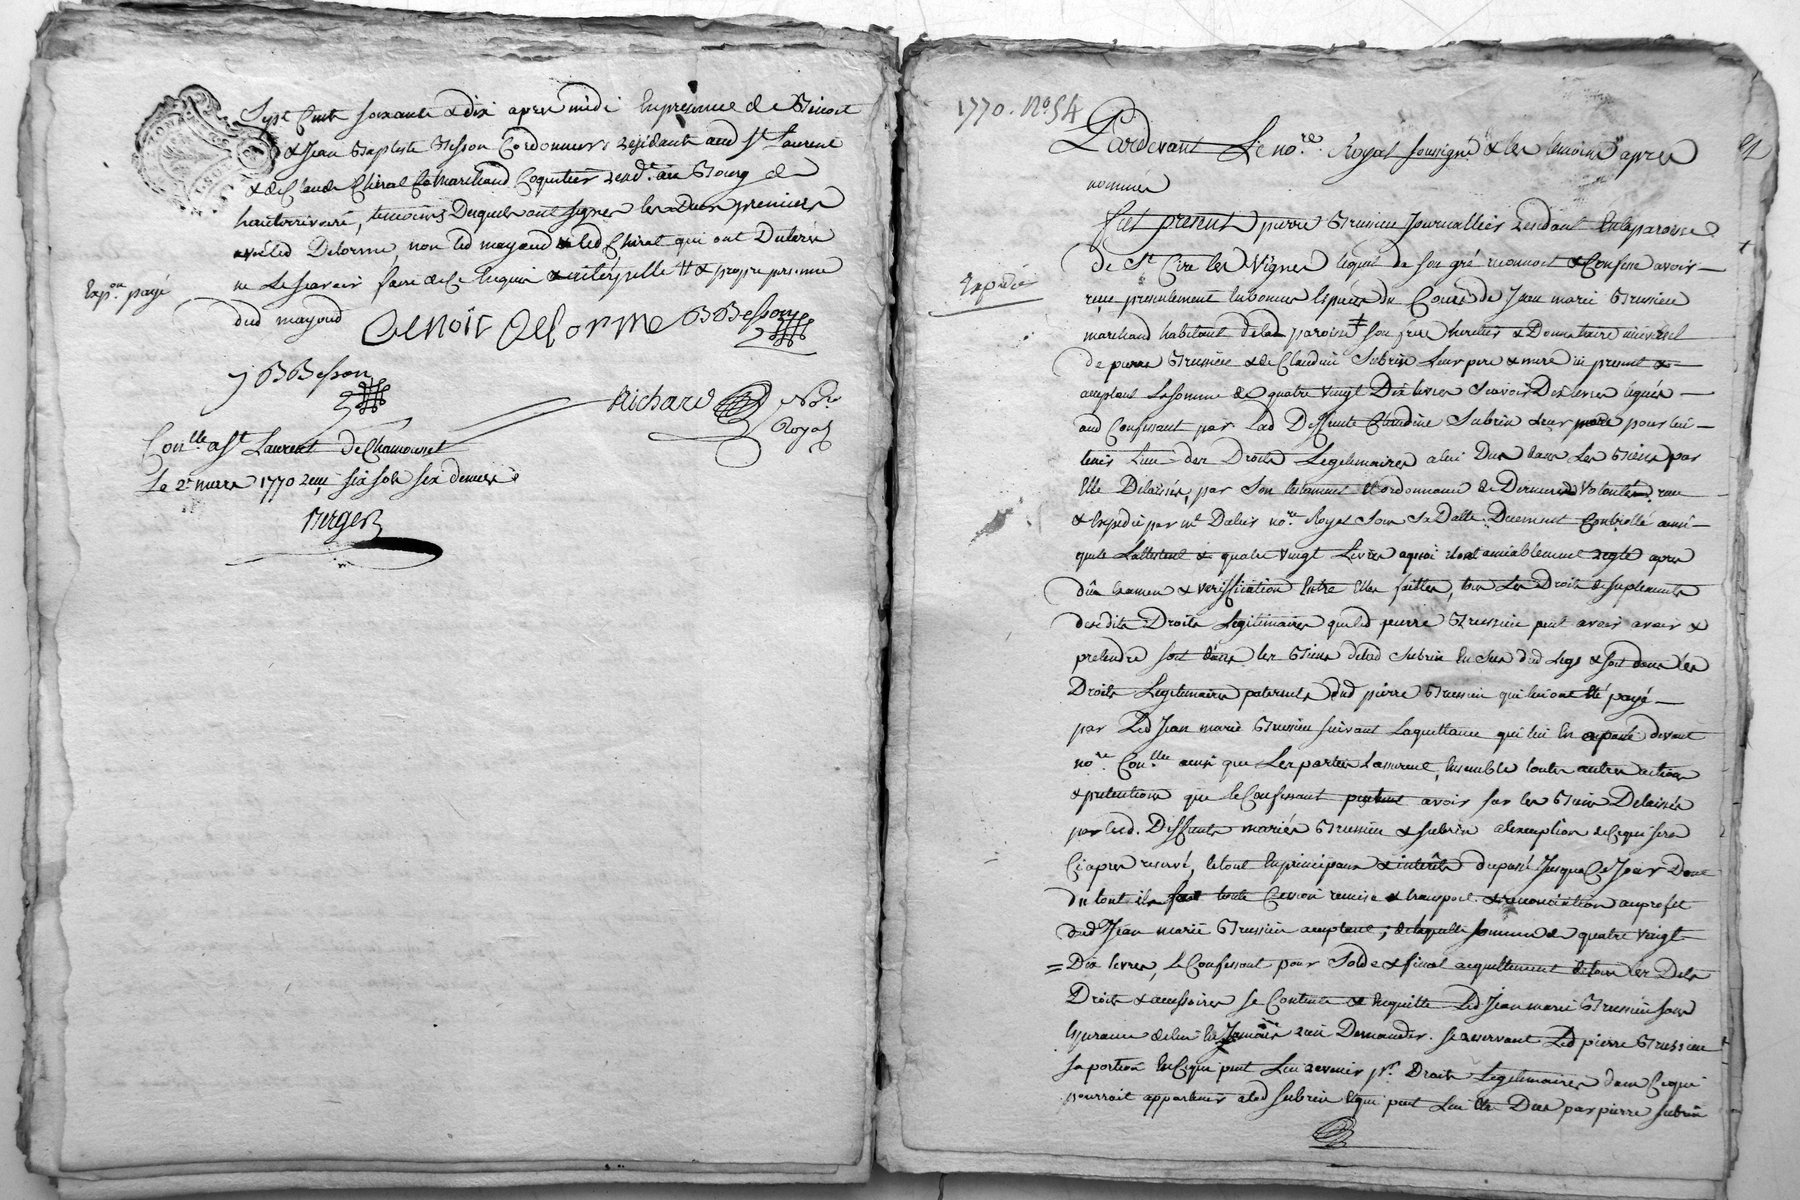 Sept Cents soixante & dix apres midi En presence de Benoit
& Jean Baptiste Besson Cordonniers residents aud St Laurent
& de Claude Chirat Marchand Coquetier resid.t au Bourg de
hauterivoire, temoins Desquels ont signes les Deux premiers
avec led Delorme, non led mayoud & led Chirat qui ont Declarés
ne le sçavoir faire de ce Enquis & interpellé & propre personne
dud mayoud
Exp.on payé
Benoit Delorme BBesson
JBBesson
Richard No.re
Royal
Con.lle a St Laurent de Chamousset
Le 2e mars 1770 reçu six sols six deniers
Berger
1770. No 54
Pardevant Le no.re Royal soussigné & les temoins apres
nommés
Expedié
Fut présent pierre Brussieu Journallier residant En la paroisse
de St Cire les Vignes lequel de son gré reconnoit & Confesse avoir
reçu presentement En bonnes Espèces du Cours de Jean marie Brussieu
marchand habitant de lad paroisse son frere heritier & Donnataire universel
de pierre Brussieu & de Claudine Subrin Leurs pere & mere ici present &
acceptant La somme de quatre vingt Dix livres Sçavoir Dix livres leguées
aud Confessant par Lad Deffunte Claudine Subrin leur mere pour lui
tenir Lieu des Droits Legitimaires a lui Dus dans Les Biens par
Elle Delaissés, par Son testament & ordonnance de Derniere Volonté reçu
& Expedié par me Dalier no.re Royal Sous Sa Datte Duement Controllé ainsi
qu'ils L'attestent & quatre vingt Livres a quoi ils ont amiablement reglé apres
dûe Examen & veriffication Entre Elles faittes, tous Les Droits de suplements
desdits Droits Legitimaires que led pierre Brussieu peut avoir avoir &
pretendre soit dans les Biens de lad Subrin En Sus dud Legs & soit dans les
Droits Legitimaires paternels dud pierre Brussieu qui lui ont été payé
par Led Jean marie Brussieu suivant La quittance qui lui En a passé devant
no.re Con.lle ainsi que Les parties L'assurent, Ensemble toutes autres actions
& pretentions que le Confessant peut avoir sur les Biens Delaissés
par lesd. Deffunts mariés Brussieu & Subrin a l'exception de ce qui sera
Ci apres reservé, le tout En principaux & intérêts du passé Jusqu'a Ce Jour Dont
du tout il fait toute Cession remise & transport & renonciation au profit
dud Jean marie Brussieu acceptant; de laquelle somme de quatre vingt
Dix livres, Le Confessant pour Solde & final acquittement de tous les Dits
Droits & accessoires se Contente & En quitte Led Jean marie Brussieu sous
Esperance de lui En Jamais rien Demander. se reservant Led pierre Brussieu
sa portion En Ce qui peut Lui revenir p.r Droits Legitimaires dans Ce qui
pourroit appartenir a lad Subrin & qui peut Lui être Due par pierre Subrin